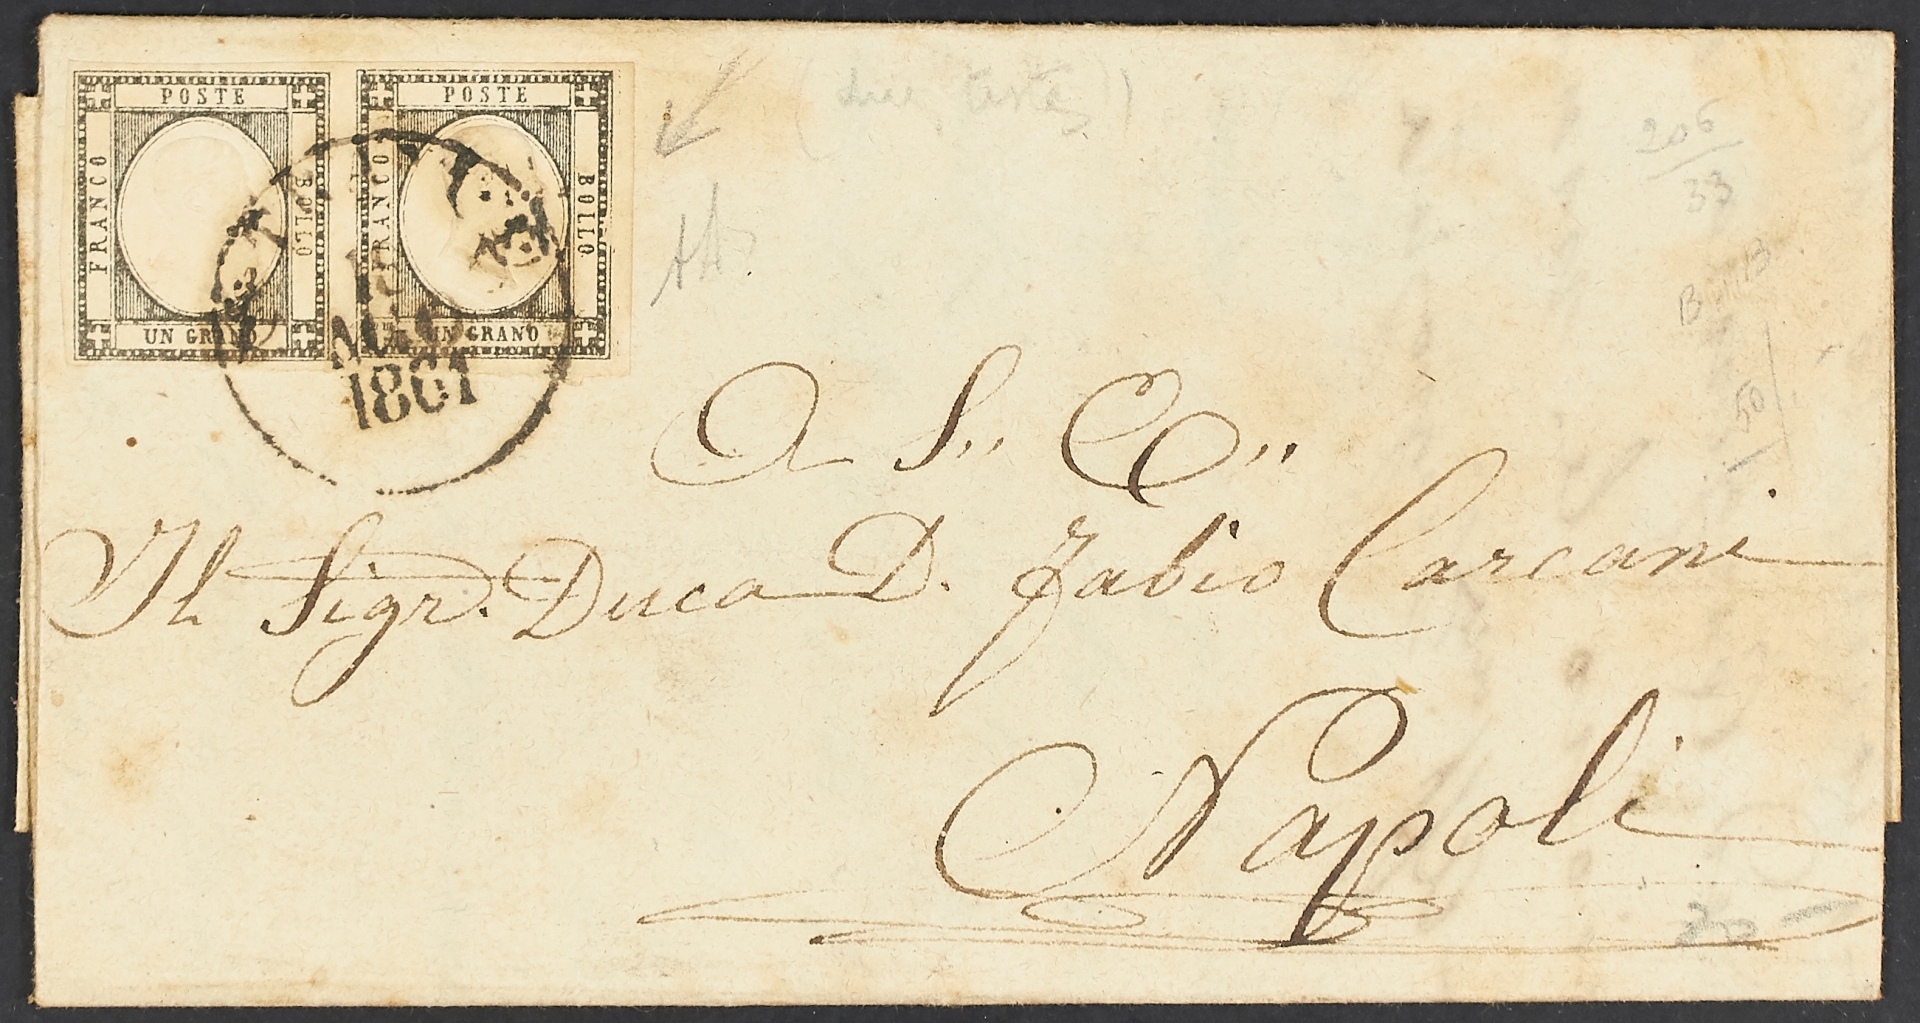 POSTE
FRANCO
BOLLO
UN GRANO
POSTE
FRANCO
BOLLO
UN GRANO
1861
(due teste)
206
33
50
A S. E.
Il Sigr. Duca D. Fabio Carcani
Napoli
200